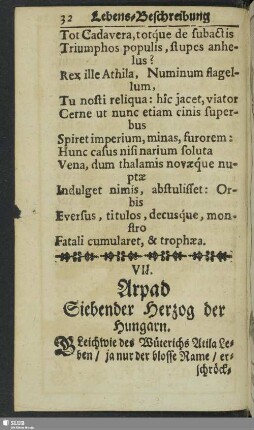 32 Lebens-Beschreibung
Tot Cadavera, totque de subactis
Triumphos populis, stupes anhe-
lus?
Rex ille Athila, Numinum flagel-
lum,
Tu nosti reliqua: hic jacet, viator
Cerne ut nunc etiam cinis super-
bus
Spiret imperium, minas, furorem:
Hunc casus nisi narium soluta
Vena, dum thalamis novæque nu-
ptæ
Indulget nimis, abstulisset: Or-
bis
Eversus, titulos, decusque, mon-
stro
Fatali cumularet, & trophæa.
VII.
Arpad
Siebender Herzog der
Hungarn.
Gleichwie des Wüterichs Atila Le-
ben / ja nur der blosse Name / er-
schröck-
SLUB